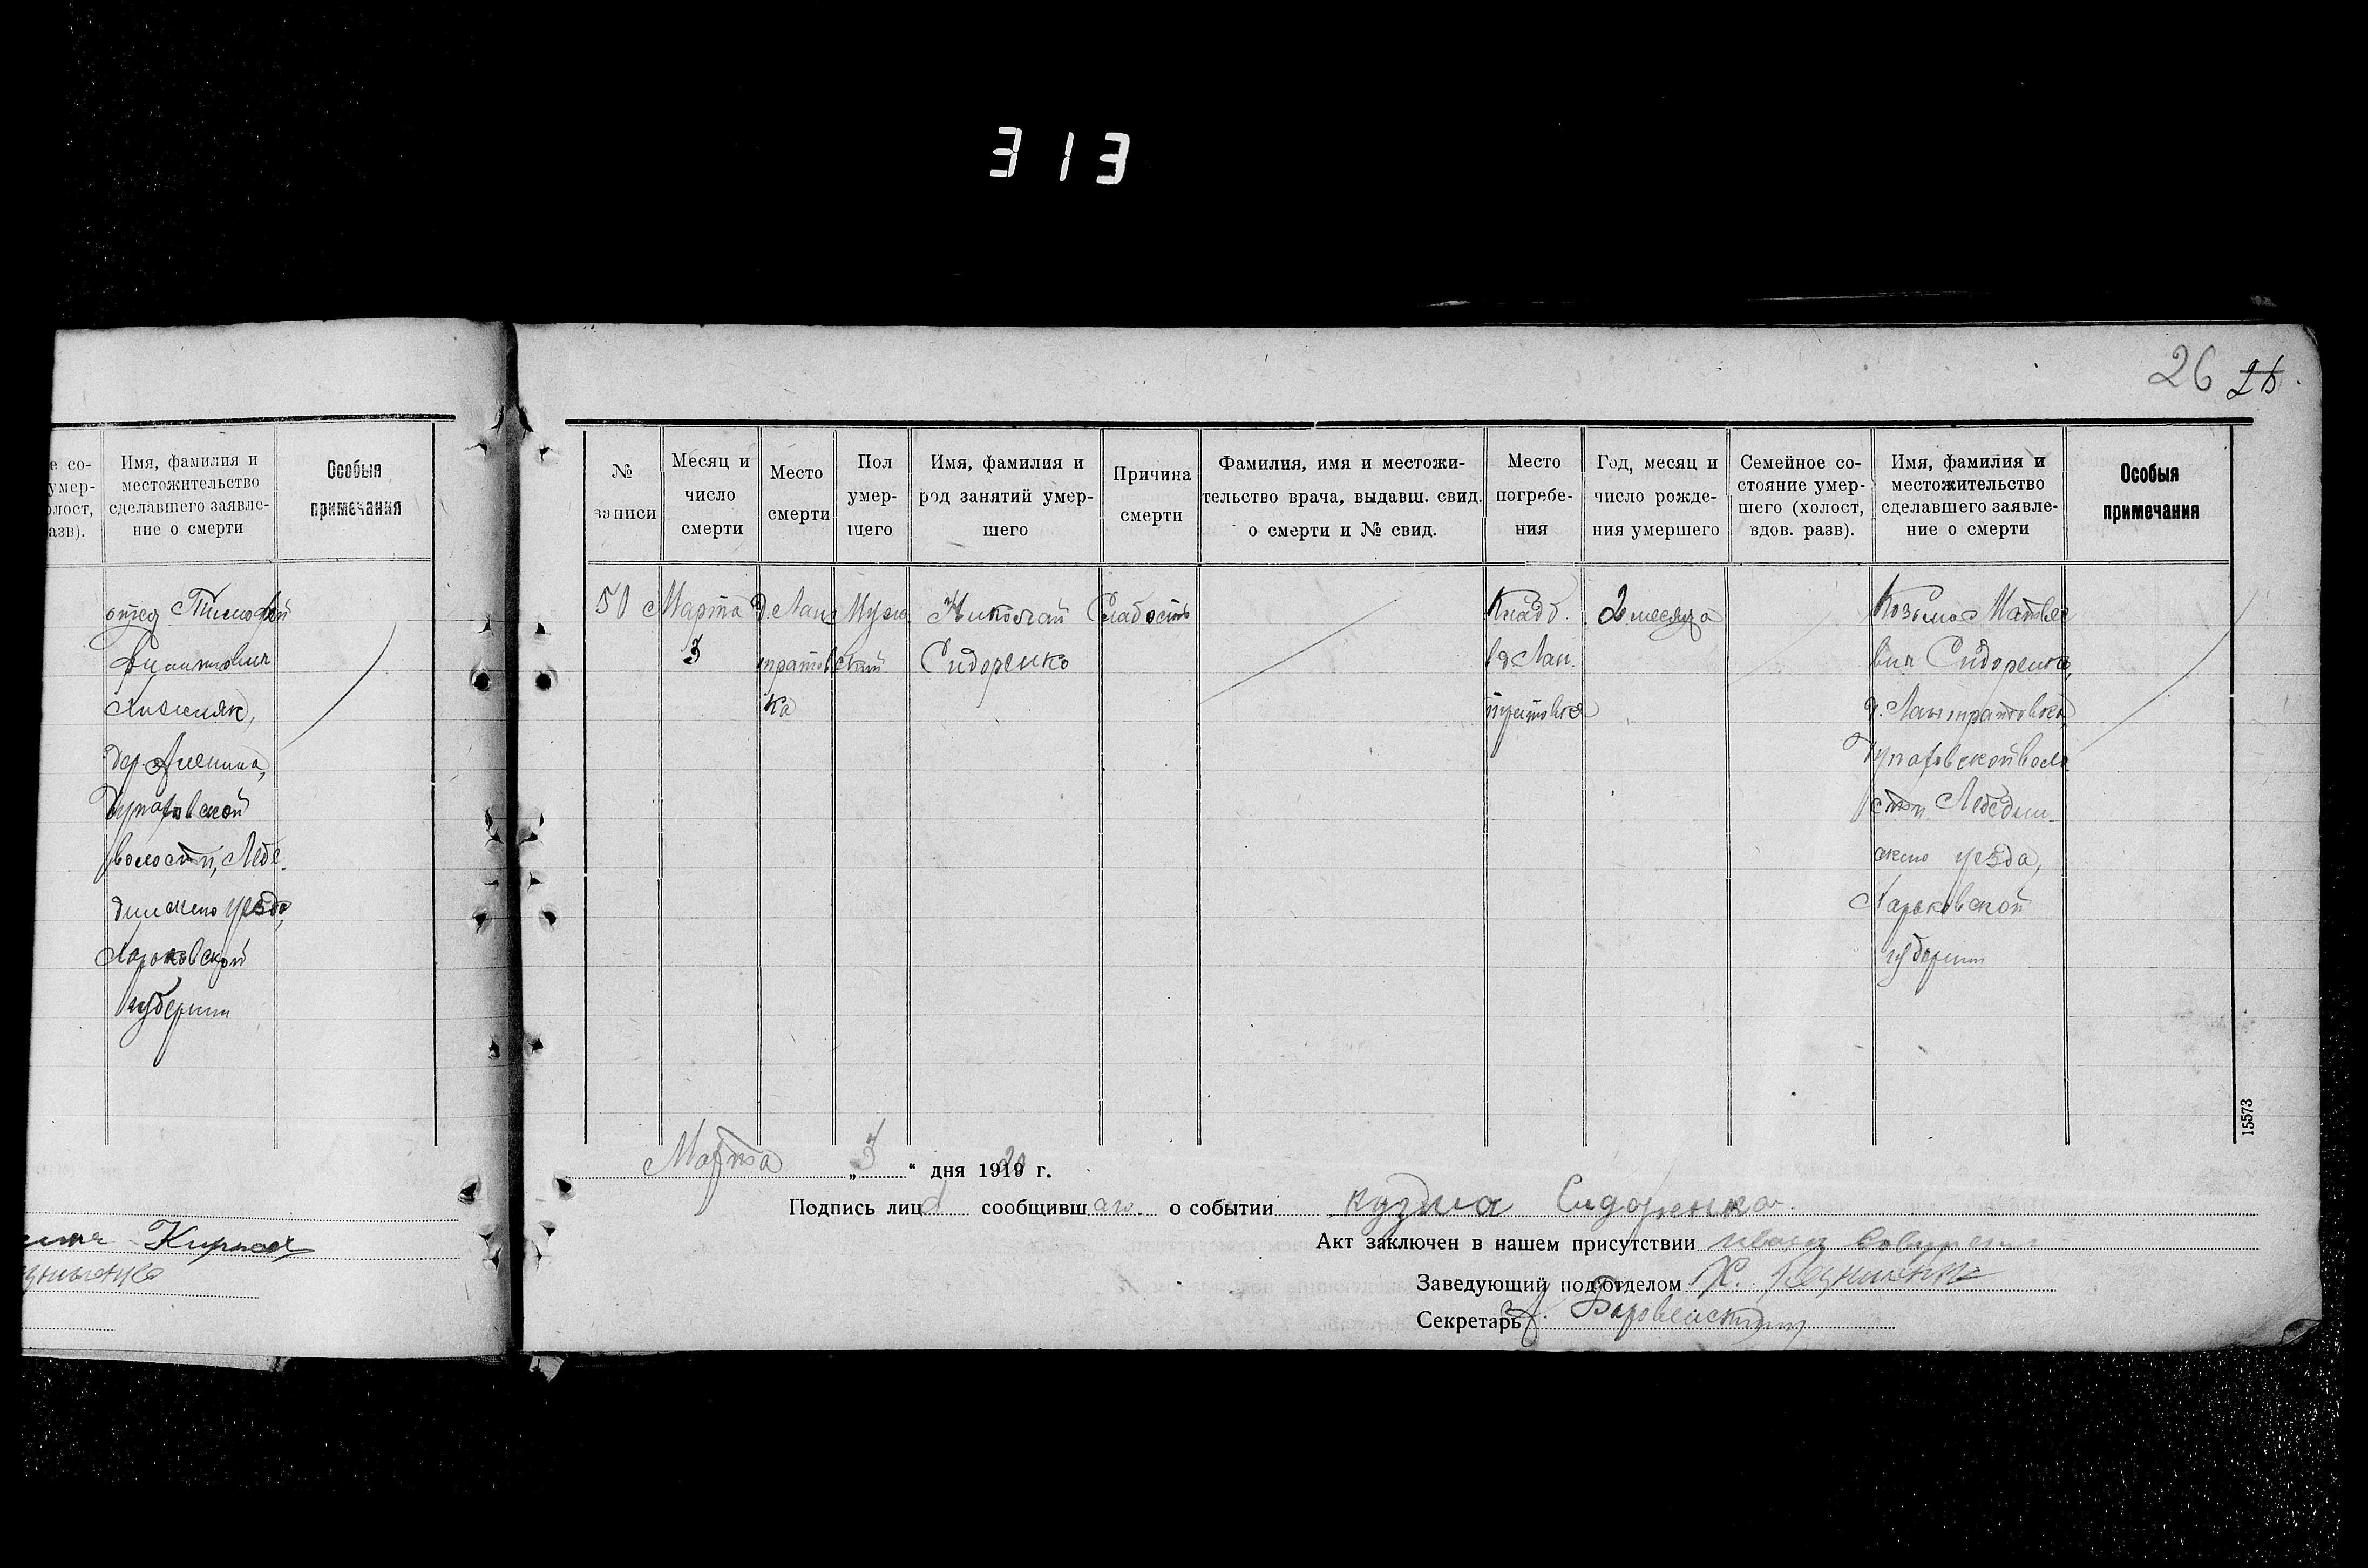 313
26 25
е со-
умер-
олост,
азв).
Имя, фамилия и
местожительство
сделавшего заявле-
ние о смерти
Особыя
примечания
отец Тимофей
Хижняк,
дер.
волости, Лебе-
динского уезда,
Харьковской
губернии
№
записи
Месяц и
число
смерти
Место
смерти
Пол
умер-
шего
Имя, фамилия и
род занятий умер-
шего
Причина
смерти
Фамилия, имя и местожи-
тельство врача, выдавш. свид.
о смерти и № свид.
Место
погребе-
ния
Год, месяц и
число рожде-
ния умершего
Семейное со-
стояние умер-
шего (холост,
вдов. разв).
Имя, фамилия и
местожительство
сделавшего заявле-
ние о смерти
Особыя
примечания
50
Марта
3
д. Лан
тратов
ка
Муж
ский
Николай
Сидоренко
Слабость
Кладб.
в д Лан-
тратовке
2 месяца
Козьма Матвее
вич Сидоренко,
д. Лантратовка,
воло
сти Лебедин-
ского уезда,
Харьковской
губернии
15573
Марта „ 3 “ дня 1920 г.
Подпись лица сообщившаго о событии Кузма Сидоренко.
Акт заключен в нашем присутствии Иван
Заведующий подотделом Х.
Секретарь